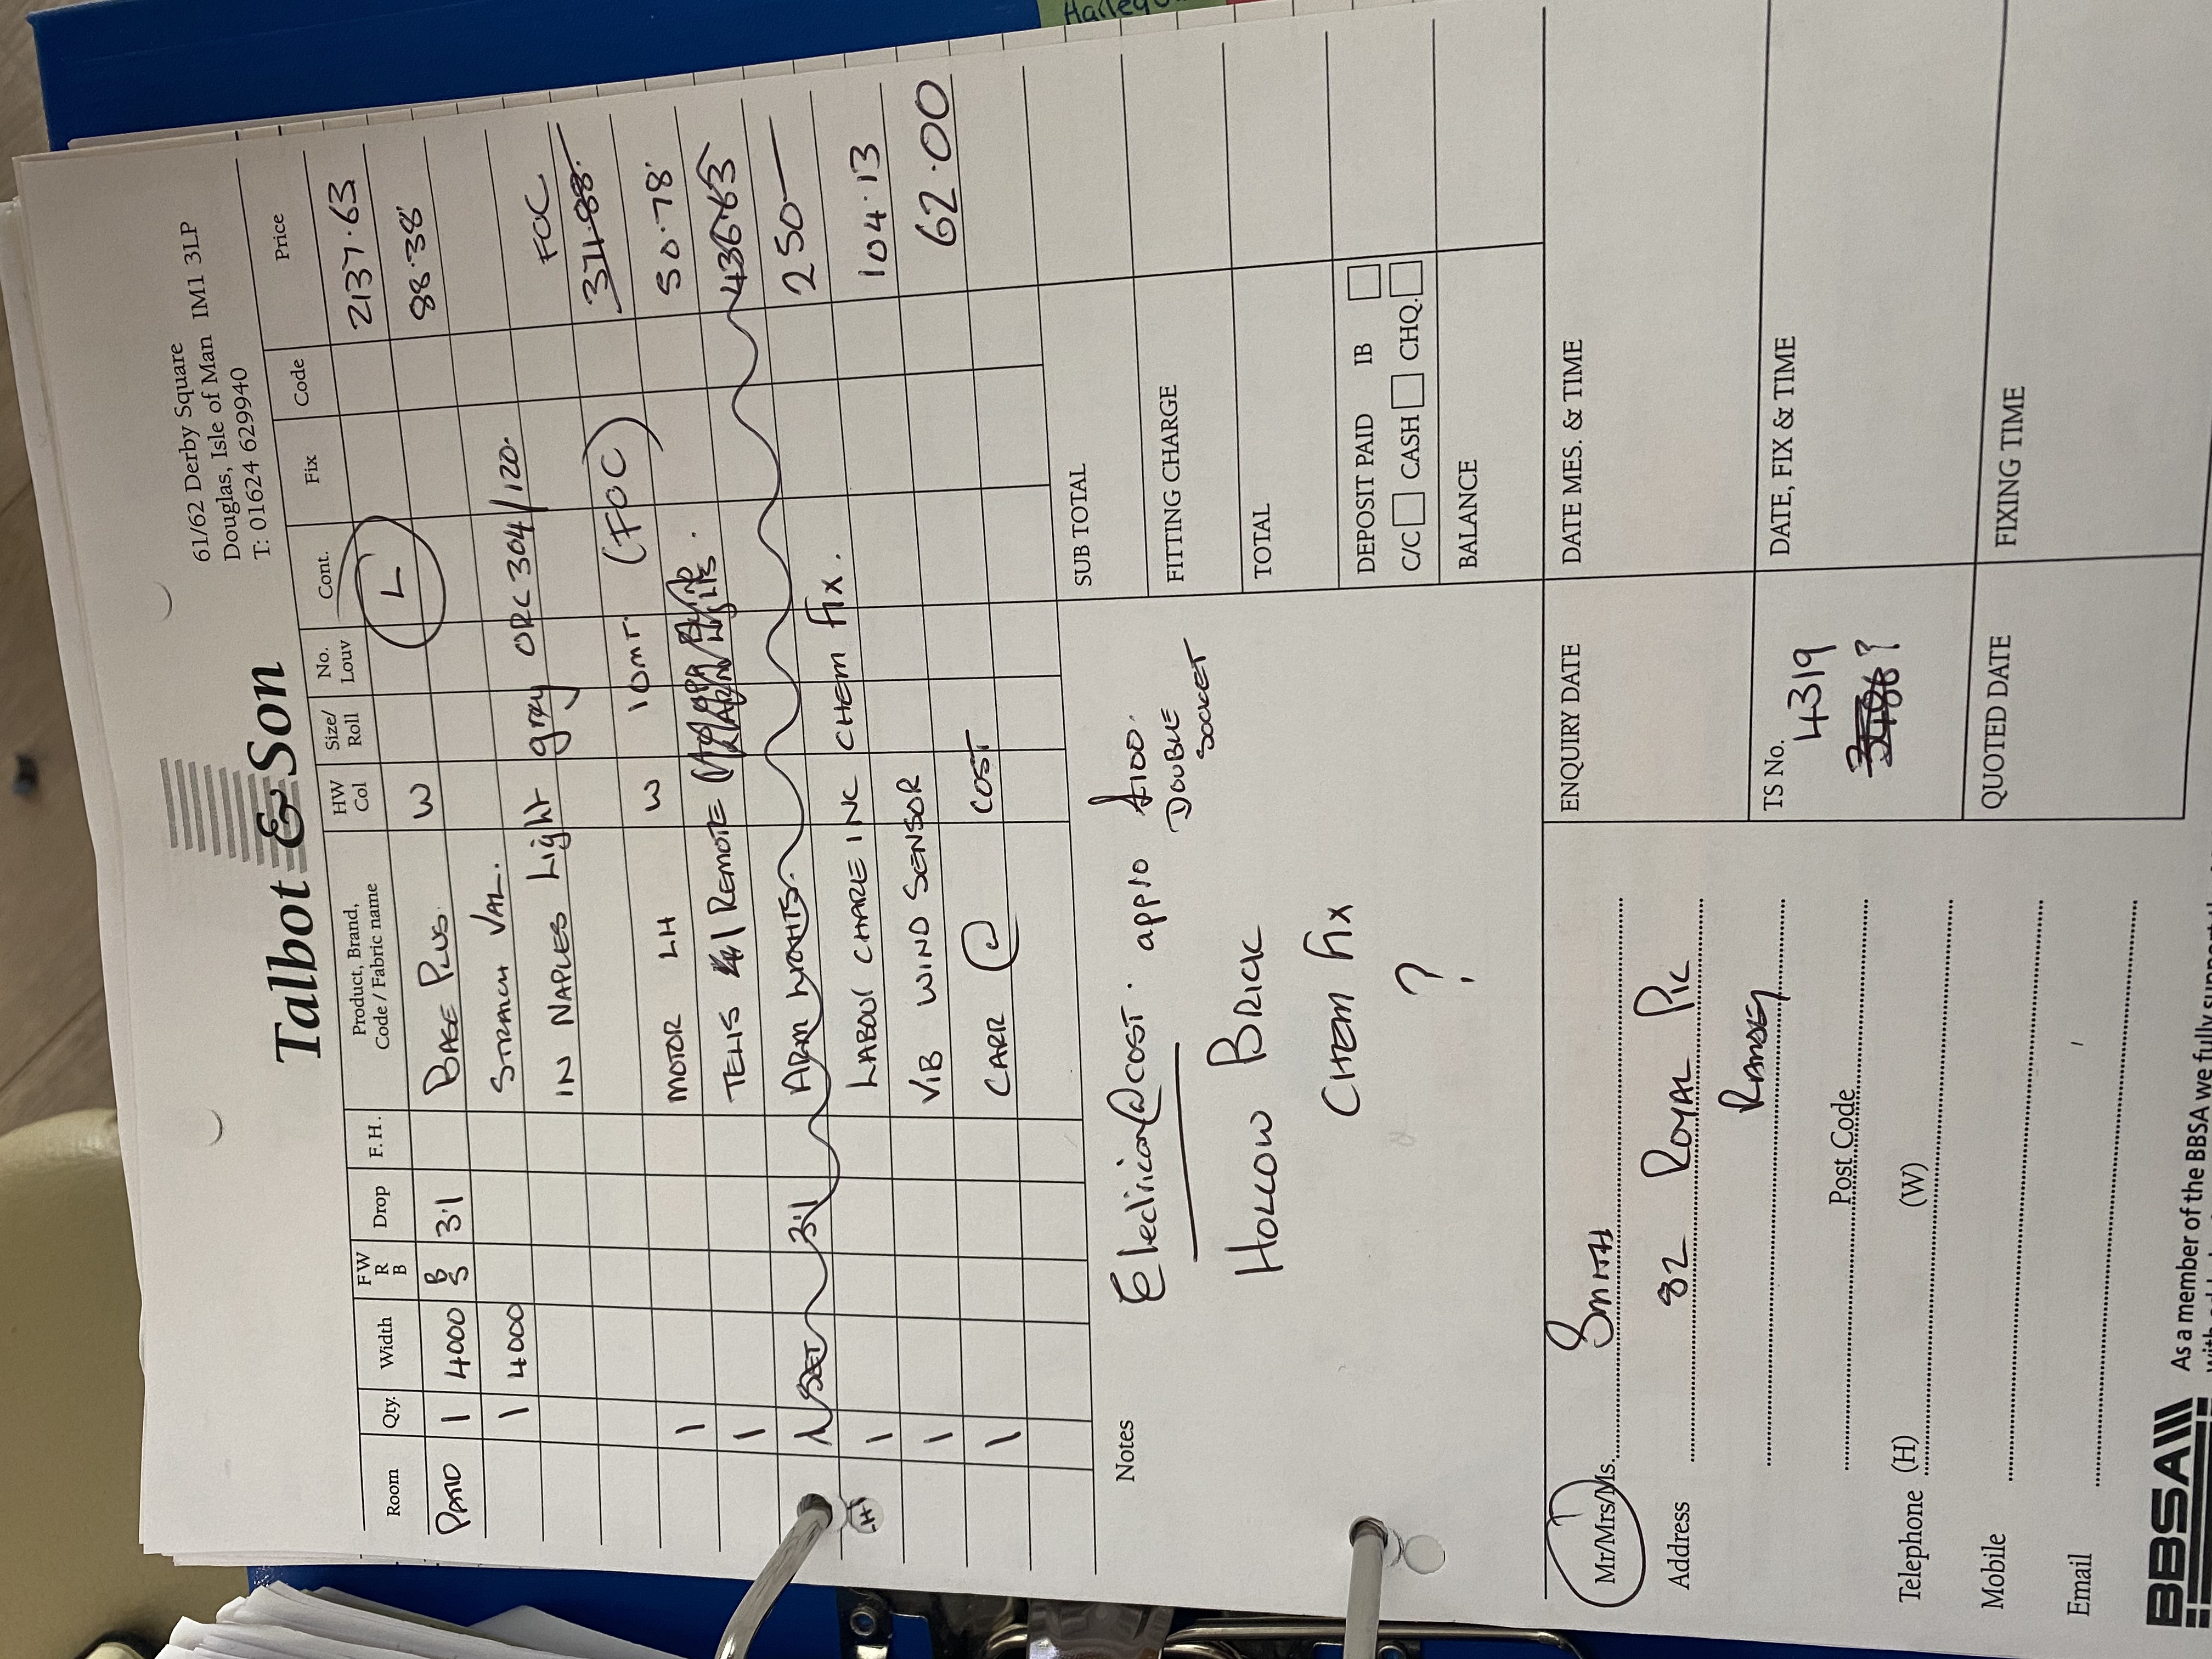 Harlequ
Talbot & Son
61/62 Derby Square
Douglas, Isle of Man IM1 3LP
T: 01624 629940
Room Qty. Width FW R B Drop F.H. Product, Brand, Code / Fabric name HW Col Size/ Roll No. Louv Cont. Fix Code Price
PATIO 1 4000 B S 3·1 BASE PLUS. W L 2137·63
1 4000 STRAIGH VAL. 88·38
IN NAPLES Light gray ORC 304/120.
FOC
(FOC) 374.88.
1 MOTOR LH W 10mT. 50·78
1 TELIS 1 REMOTE 436·63
1 SET 3·1 ARM LIGHTS. 250—
1 LABOUR CHARE INC CHEM fix. 104·13
1 VIB WIND SENSOR 62·00
1 CARR @ COST
Notes
Electrician@COST. appro £100.
DOUBLE
SOCKET
HOLLOW BRICK
CHEM fix
?
SUB TOTAL
FITTING CHARGE
TOTAL
DEPOSIT PAID IB
C/C CASH CHQ.
BALANCE
Mr/Mrs/Ms. SMITH
Address 82 ROYAL PK
RAMSEY
Post Code
Telephone (H) (W)
Mobile
Email
ENQUIRY DATE
DATE MES. & TIME
TS No. 4319
?
DATE, FIX & TIME
QUOTED DATE
FIXING TIME
BBSA
As a member of the BBSA we fully support